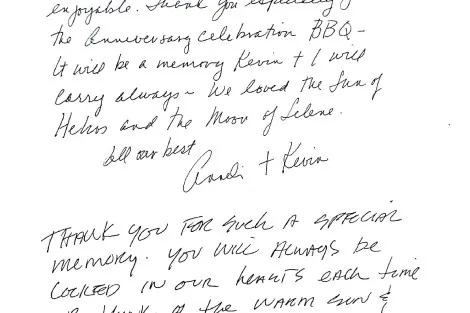 enjoyable. Thank you especially f
the anniversary celebration BBQ -
It will be a memory Kevin + I will
carry always ~ We loved the Sun of
Helios and the Moon of Selene.
All our best
Andi + Kevin
THANK YOU FOR SUCH A SPECIAL
memory. YOU WILL ALWAYS be
LOCKED IN OUR heARTS EACH time
the WARM SUN &